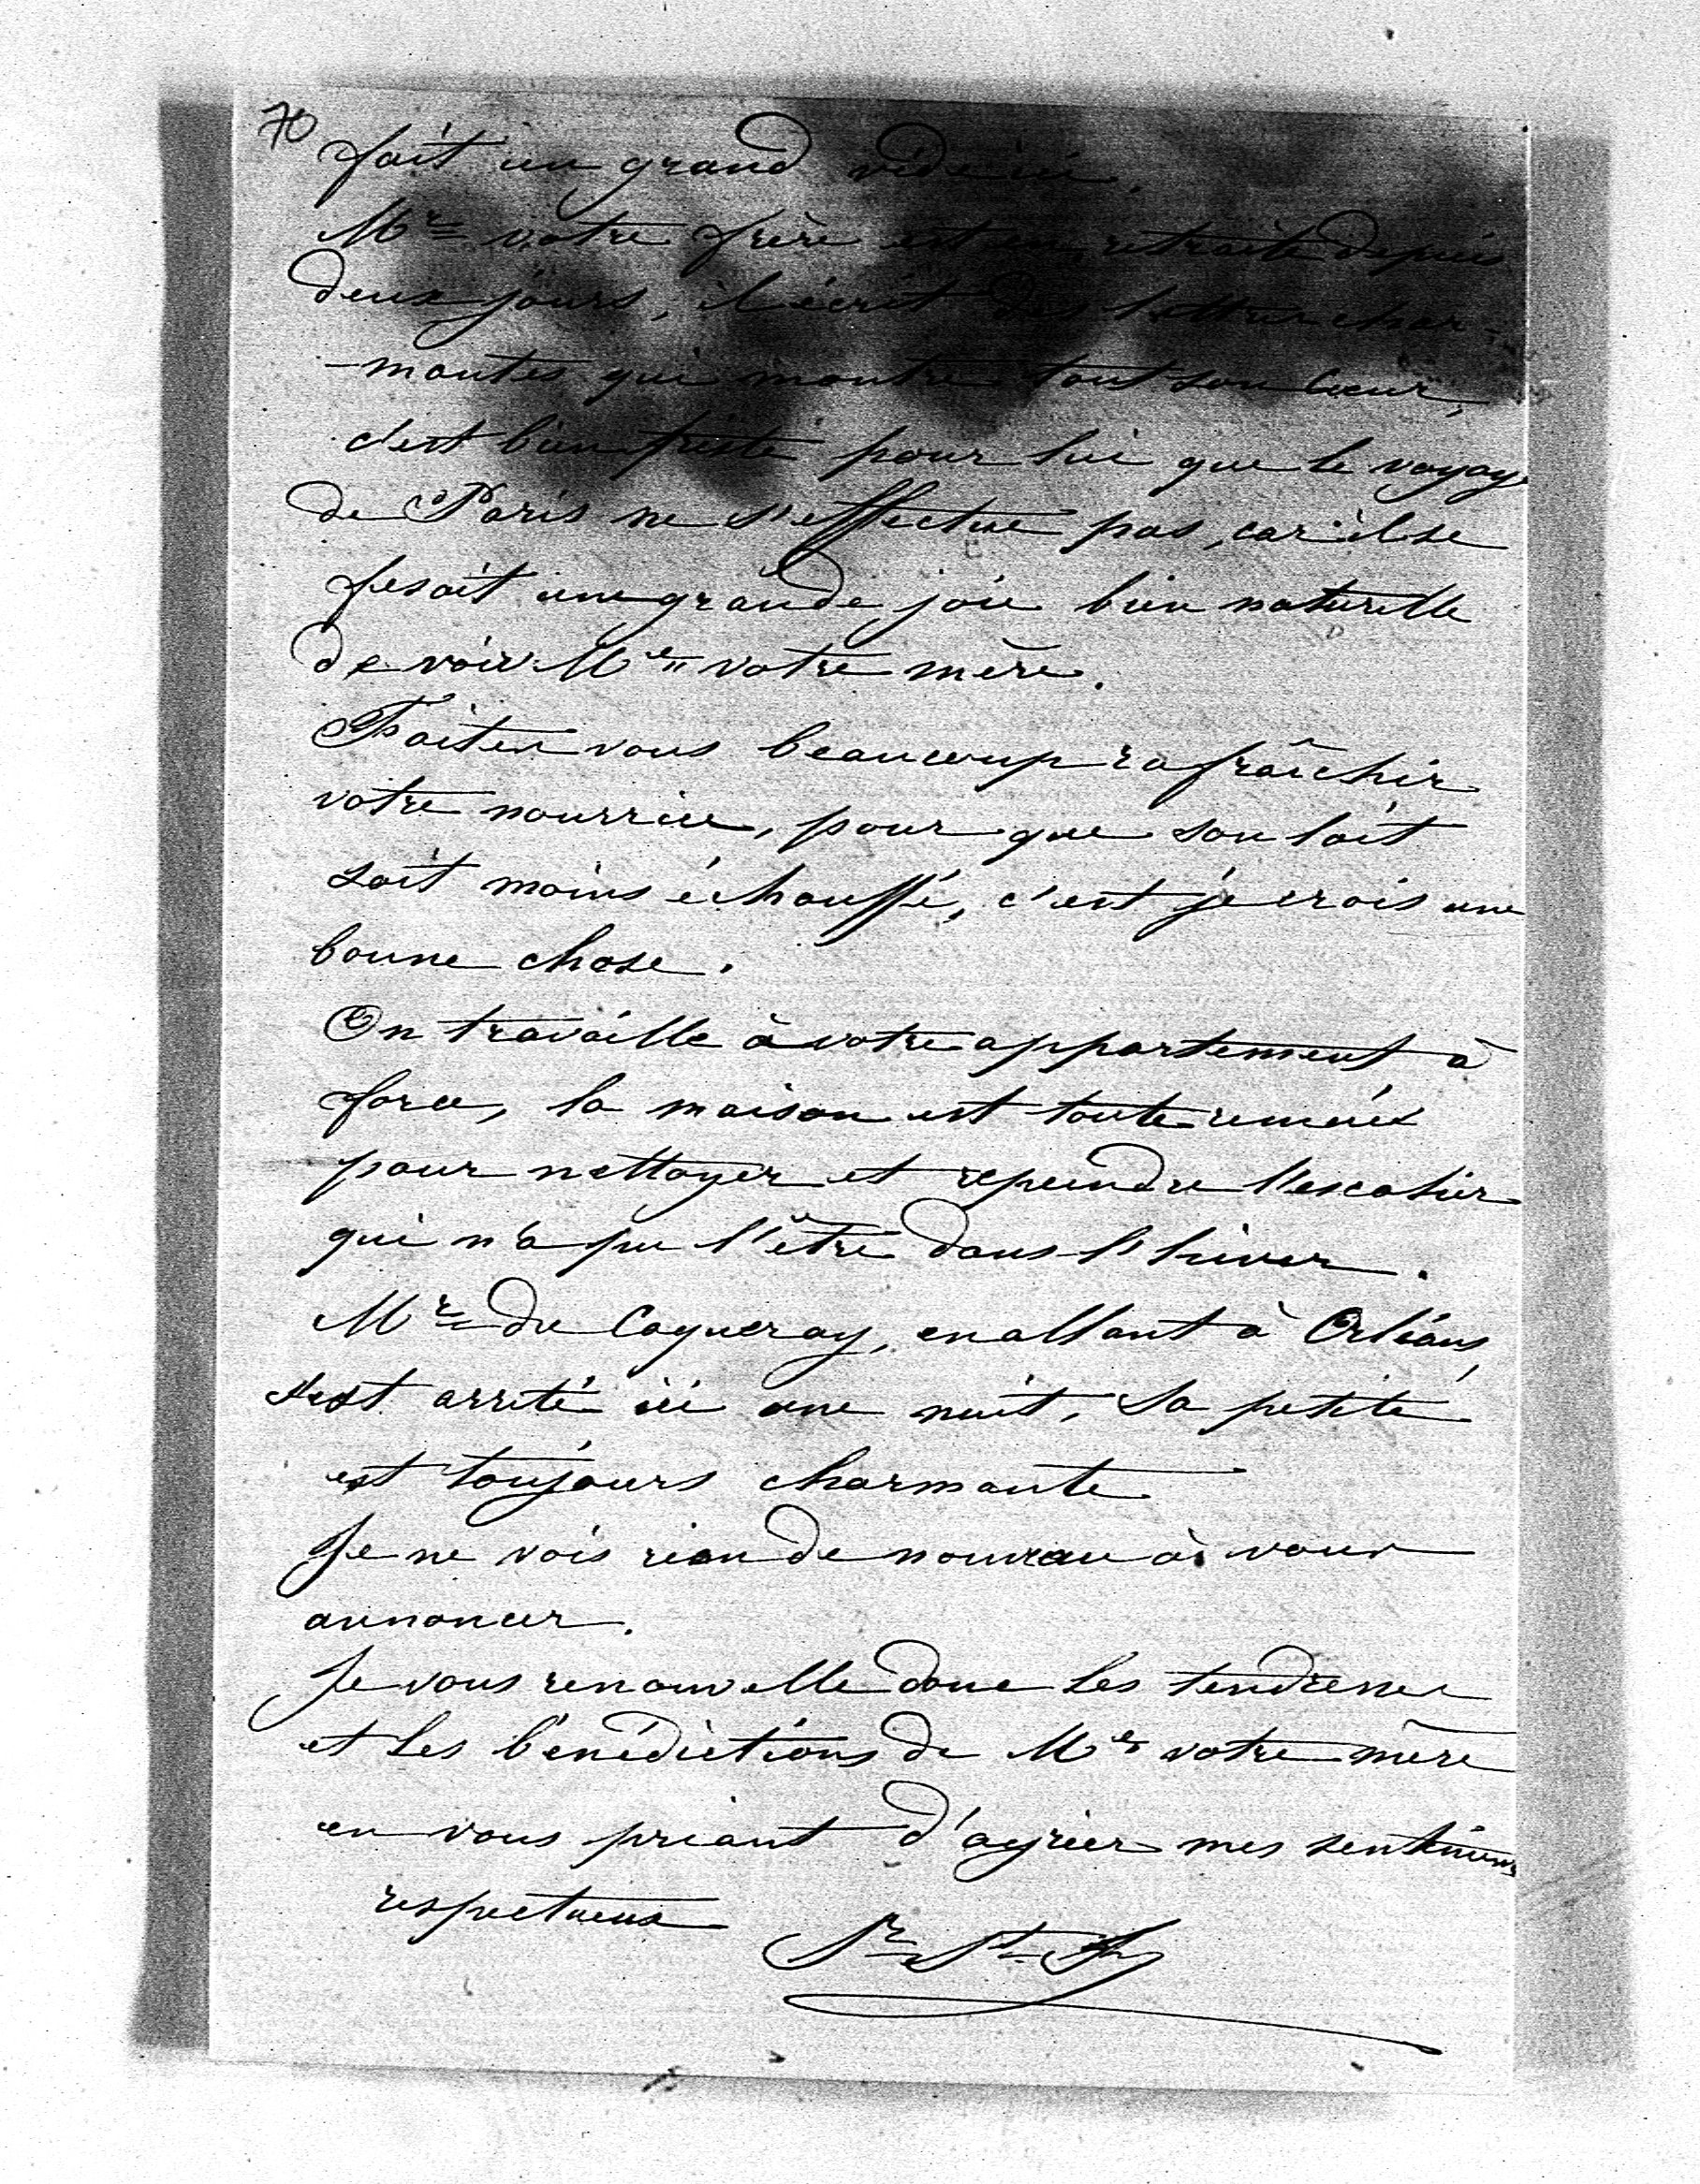 70
fait un grand vide ici.
Mr votre frère est en retraite depuis
deux jours, il écrit des lettres char-
-mantes qui montre tout son cœur,
c'est bien triste pour lui que le voyage
de Paris ne s'effectue pas, car il se
fesait une grande joie bien naturelle
de voir Me votre mère.
Faites vous beaucoup rafraîchir
votre nourrice, pour que son lait
soit moins échauffé, c'est je crois une
bonne chose.
On travaille à votre appartement à
force, la maison est toute remuée
pour nettoyer et repeindre l'escalier
qui n'a pu l'être dans l'hiver.
Mr de Caqueray, en allant à Orléans,
s'est arrêté ici une nuit. Sa petite
est toujours charmante
Je ne vois rien de nouveau à vous
annoncer.
Je vous renouvelle donc les tendresses
et les bénédictions de Me votre mère
en vous priant d'agréer mes sentimens
respectueux